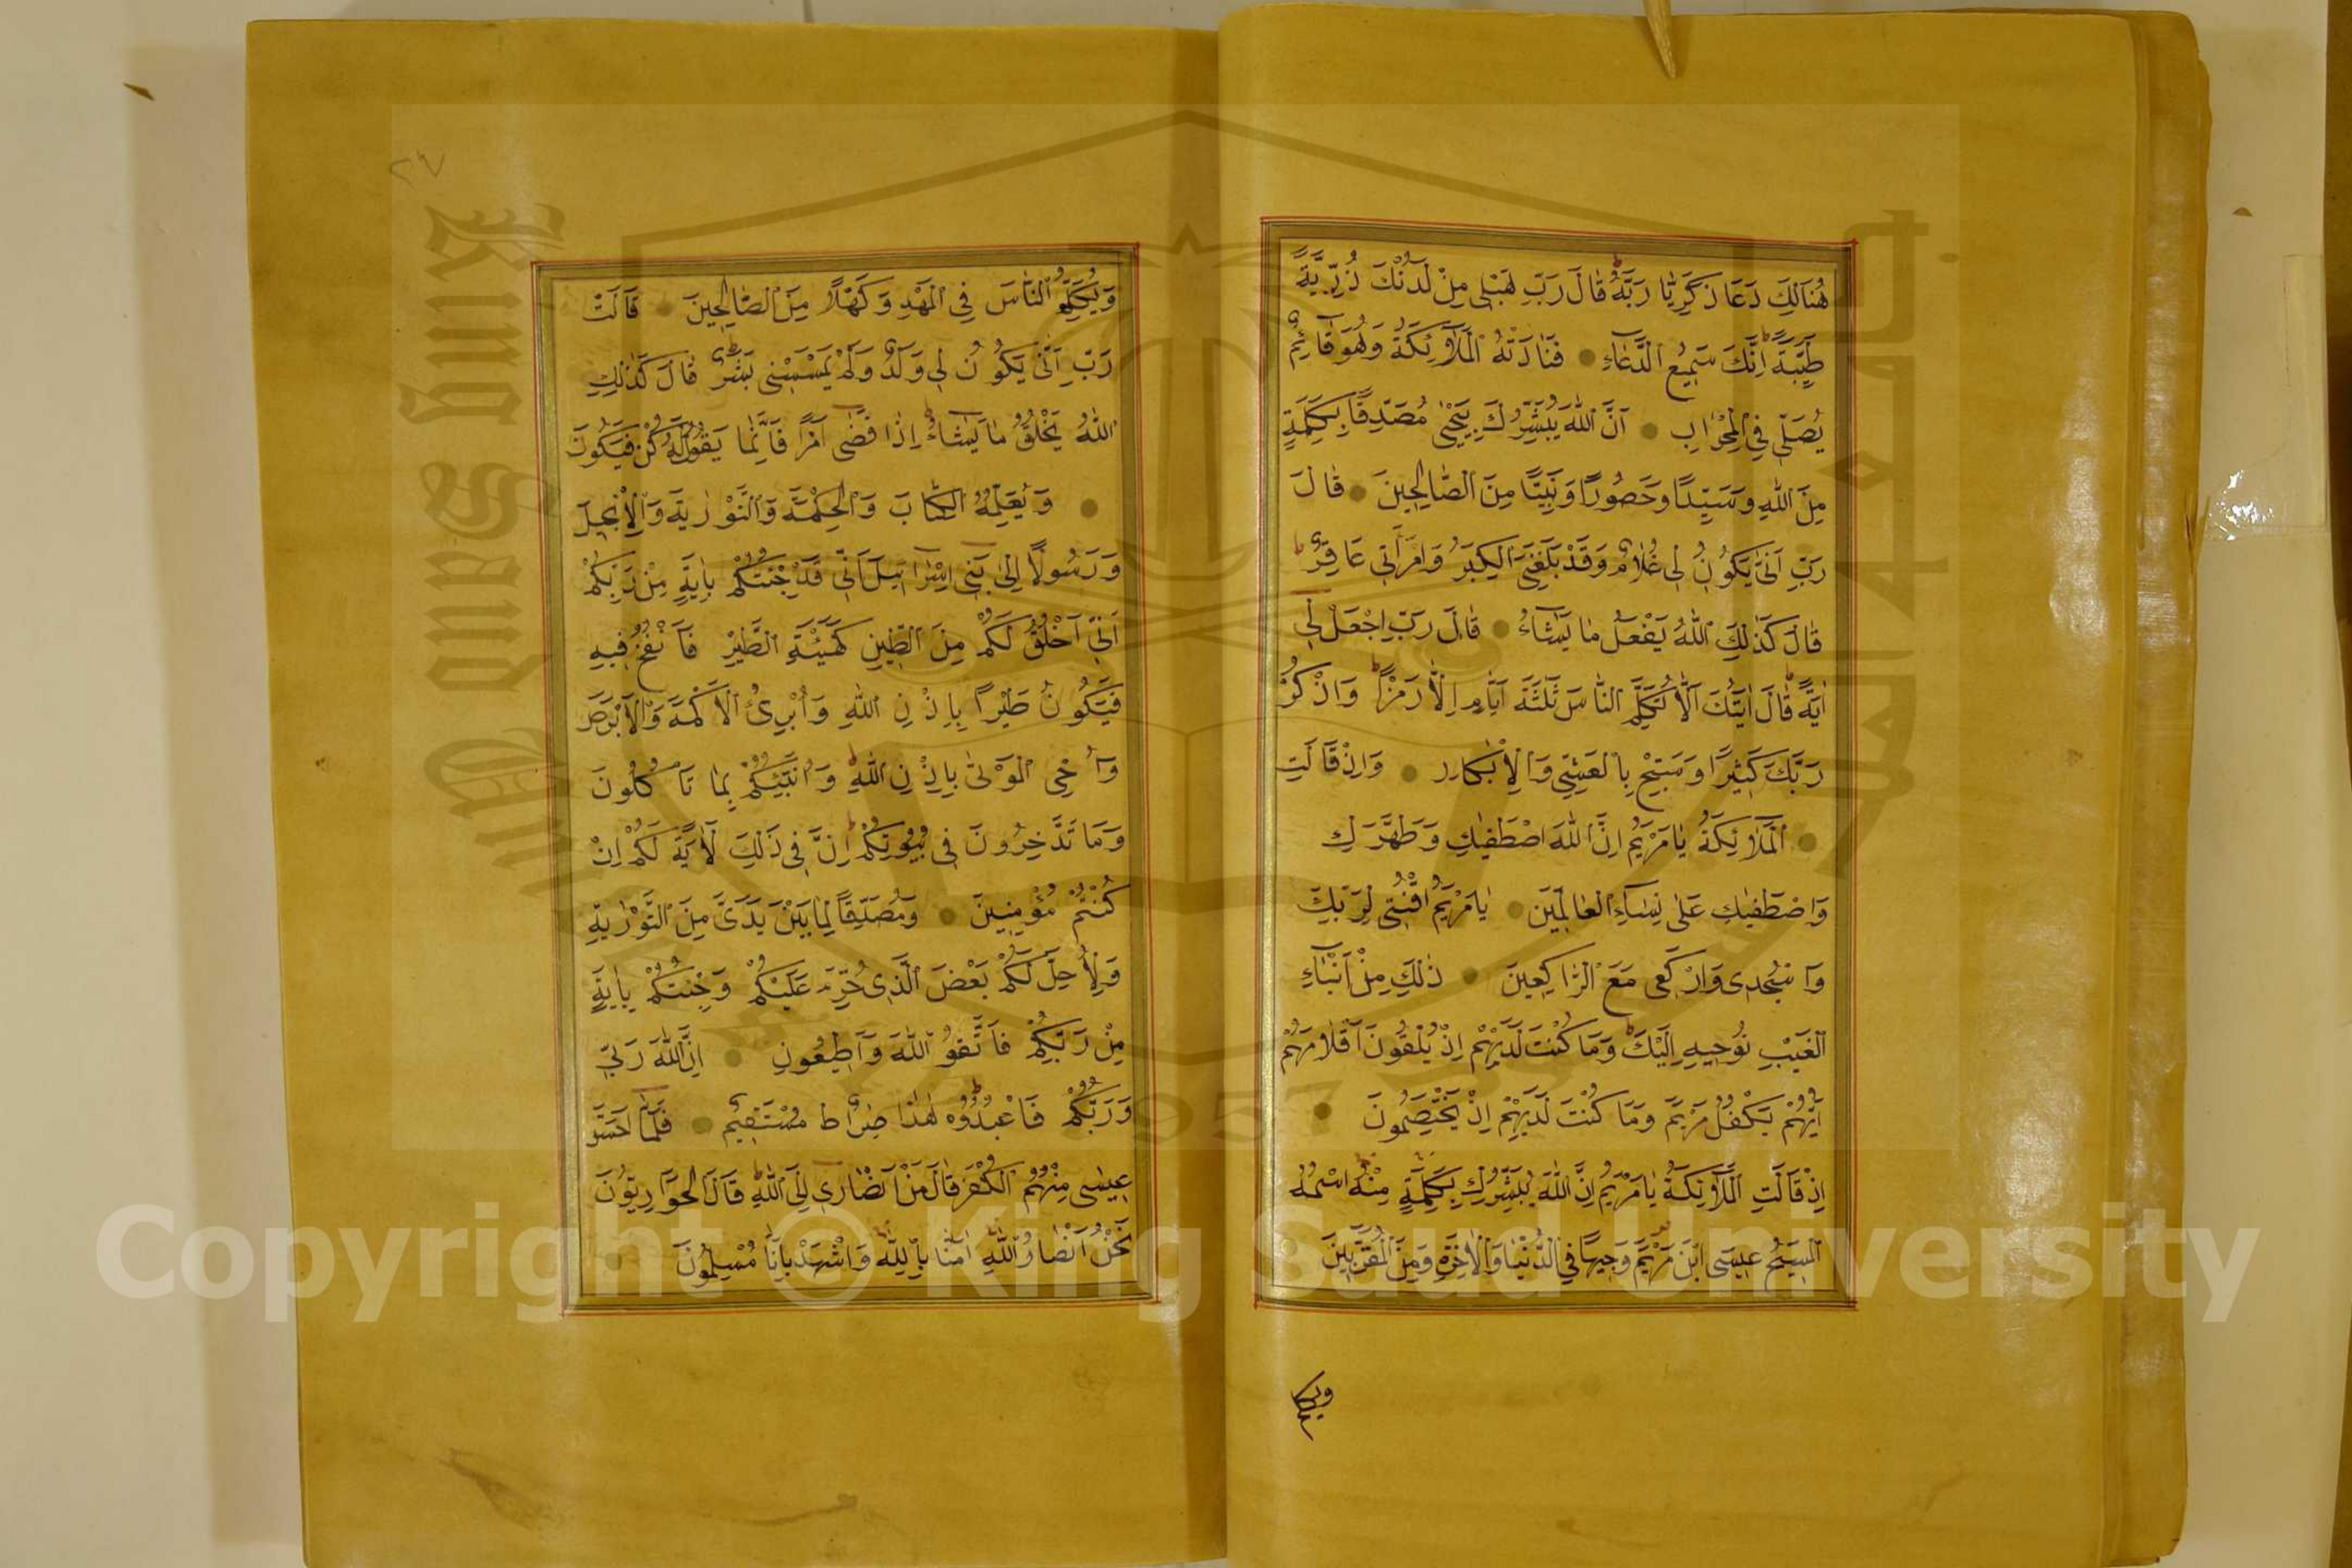 هُنَالِكَ دَعَا زَكَرِيَّا رَبَّهُ قَالَ رَبِّ هَبْلِى مِنْ لَدُنْكَ ذُرِّيَّةً
طَيِّبَةً اِنَّكَ سَمِيعُ الدُّعَاءِ فَنَادَتْهُ الْمَلَآئِكَةُ وَهُوَ قَآئِمٌ
يُصَلِّى فِى الْمِحْرَابِ اَنَّ اللّٰهَ يُبَشِّرُكَ بِيَحْيٰى مُصَدِّقًا بِكَلِمَةٍ
مِنَ اللّٰهِ وَسَيِّدًا وَحَصُورًا وَنَبِيًّا مِنَ الصَّالِحِينَ قَالَ
رَبِّ اَنّٰى يَكُونُ لِى غُلَامٌ وَقَدْ بَلَغَنِىَ الْكِبَرُ وَامْرَأَتِى عَاقِرٌ
قَالَ كَذٰلِكَ اللّٰهُ يَفْعَلُ مَا يَشَآءُ قَالَ رَبِّ اجْعَلْ لِى
اٰيَةً قَالَ اٰيَتُكَ اَلَّا تُكَلِّمَ النَّاسَ ثَلٰثَةَ اَيَّامٍ اِلَّا رَمْزًا وَاذْكُرْ
رَبَّكَ كَثِيرًا وَسَبِّحْ بِالْعَشِىِّ وَالْاِبْكَارِ وَاِذْ قَالَتِ
الْمَلَآئِكَةُ يَا مَرْيَمُ اِنَّ اللّٰهَ اصْطَفٰيكِ وَطَهَّرَكِ
وَاصْطَفٰيكِ عَلٰى نِسَآءِ الْعَالَمِينَ يَا مَرْيَمُ اقْنُتِى لِرَبِّكِ
وَاسْجُدِى وَارْكَعِى مَعَ الرَّاكِعِينَ ذٰلِكَ مِنْ اَنْبَآءِ
الْغَيْبِ نُوحِيهِ اِلَيْكَ وَمَا كُنْتَ لَدَيْهِمْ اِذْ يُلْقُونَ اَقْلَامَهُمْ
اَيُّهُمْ يَكْفُلُ مَرْيَمَ وَمَا كُنْتَ لَدَيْهِمْ اِذْ يَخْتَصِمُونَ
اِذْ قَالَتِ الْمَلَآئِكَةُ يَا مَرْيَمُ اِنَّ اللّٰهَ يُبَشِّرُكِ بِكَلِمَةٍ مِنْهُ اسْمُهُ
الْمَسِيحُ عِيسَى ابْنُ مَرْيَمَ وَجِيهًا فِى الدُّنْيَا وَالْاٰخِرَةِ وَمِنَ الْمُقَرَّبِينَ
ويكلم
٢٧
وَيُكَلِّمُ النَّاسَ فِى الْمَهْدِ وَكَهْلًا وَمِنَ الصَّالِحِينَ قَالَتْ
رَبِّ اَنّٰى يَكُونُ لِى وَلَدٌ وَلَمْ يَمْسَسْنِى بَشَرٌ قَالَ كَذٰلِكِ
اللّٰهُ يَخْلُقُ مَا يَشَآءُ اِذَا قَضٰى اَمْرًا فَاِنَّمَا يَقُولُ لَهُ كُنْ فَيَكُونُ
وَيُعَلِّمُهُ الْكِتَابَ وَالْحِكْمَةَ وَالتَّوْرٰيةَ وَالْاِنْجِيلَ
وَرَسُولًا اِلٰى بَنِى اِسْرَائِيلَ اَنِّى قَدْ جِئْتُكُمْ بِاٰيَةٍ مِنْ رَبِّكُمْ
اَنِّى اَخْلُقُ لَكُمْ مِنَ الطِّينِ كَهَيْئَةِ الطَّيْرِ فَاَنْفُخُ فِيهِ
فَيَكُونُ طَيْرًا بِاِذْنِ اللّٰهِ وَاُبْرِئُ الْاَكْمَهَ وَالْاَبْرَصَ
وَاُحْىِ الْمَوْتٰى بِاِذْنِ اللّٰهِ وَاُنَبِّئُكُمْ بِمَا تَأْكُلُونَ
وَمَا تَدَّخِرُونَ فِى بُيُوتِكُمْ اِنَّ فِى ذٰلِكَ لَاٰيَةً لَكُمْ اِنْ
كُنْتُمْ مُؤْمِنِينَ وَمُصَدِّقًا لِمَا بَيْنَ يَدَىَّ مِنَ التَّوْرٰيةِ
وَلِاُحِلَّ لَكُمْ بَعْضَ الَّذِى حُرِّمَ عَلَيْكُمْ وَجِئْتُكُمْ بِاٰيَةٍ
مِنْ رَبِّكُمْ فَاتَّقُوا اللّٰهَ وَاَطِيعُونِ اِنَّ اللّٰهَ رَبِّى
وَرَبُّكُمْ فَاعْبُدُوهُ هٰذَا صِرَاطٌ مُسْتَقِيمٌ فَلَمَّا اَحَسَّ
عِيسٰى مِنْهُمُ الْكُفْرَ قَالَ مَنْ اَنْصَارِى اِلَى اللّٰهِ قَالَ الْحَوَارِيُّونَ
نَحْنُ اَنْصَارُ اللّٰهِ اٰمَنَّا بِاللّٰهِ وَاشْهَدْ بِاَنَّا مُسْلِمُونَ
King Saud University
1957
Copyright © King Saud University